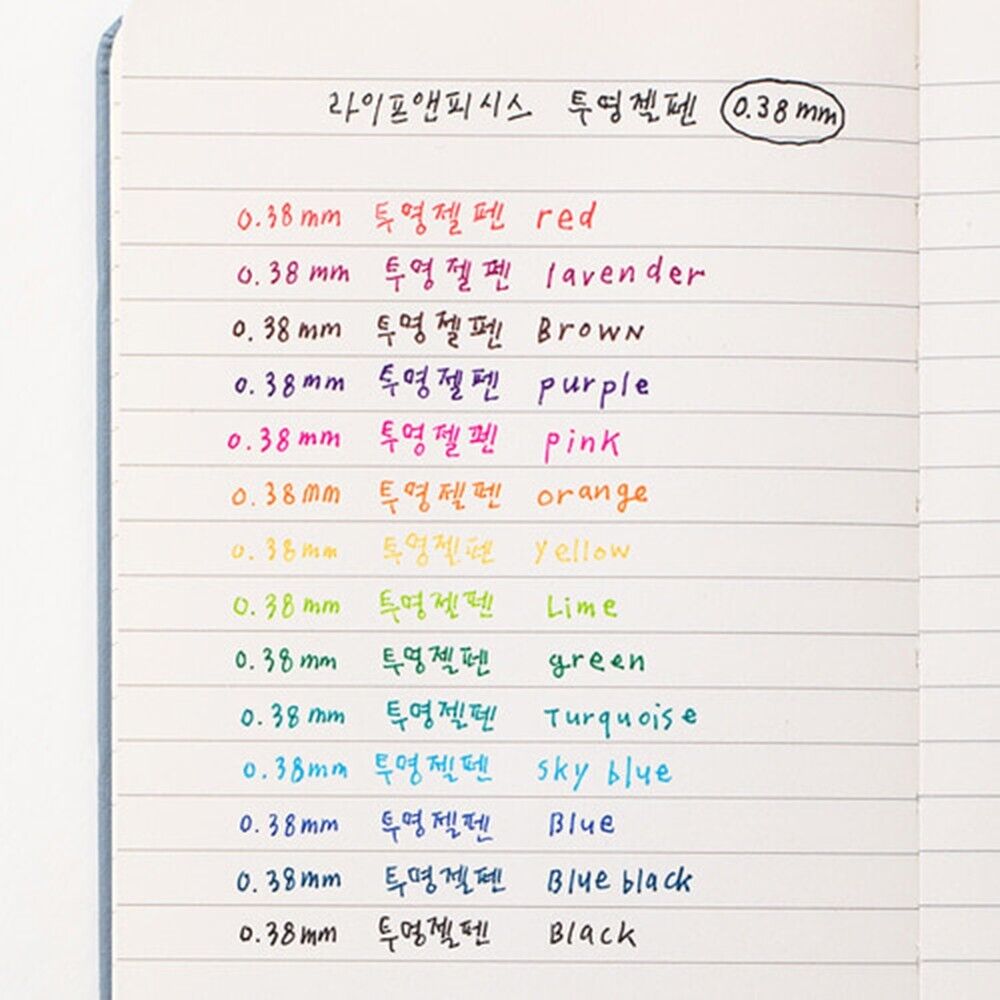 라이프앤피시스 투명젤펜 0.38mm
0.38mm 투명젤펜 red
0.38mm 투명젤펜 lavender
0.38mm 투명젤펜 Brown
0.38mm 투명젤펜 purple
0.38mm 투명젤펜 pink
0.38mm 투명젤펜 orange
0.38mm 투명젤펜 yellow
0.38mm 투명젤펜 Lime
0.38mm 투명젤펜 green
0.38mm 투명젤펜 Turquoise
0.38mm 투명젤펜 sky blue
0.38mm 투명젤펜 Blue
0.38mm 투명젤펜 Blue black
0.38mm 투명젤펜 Black